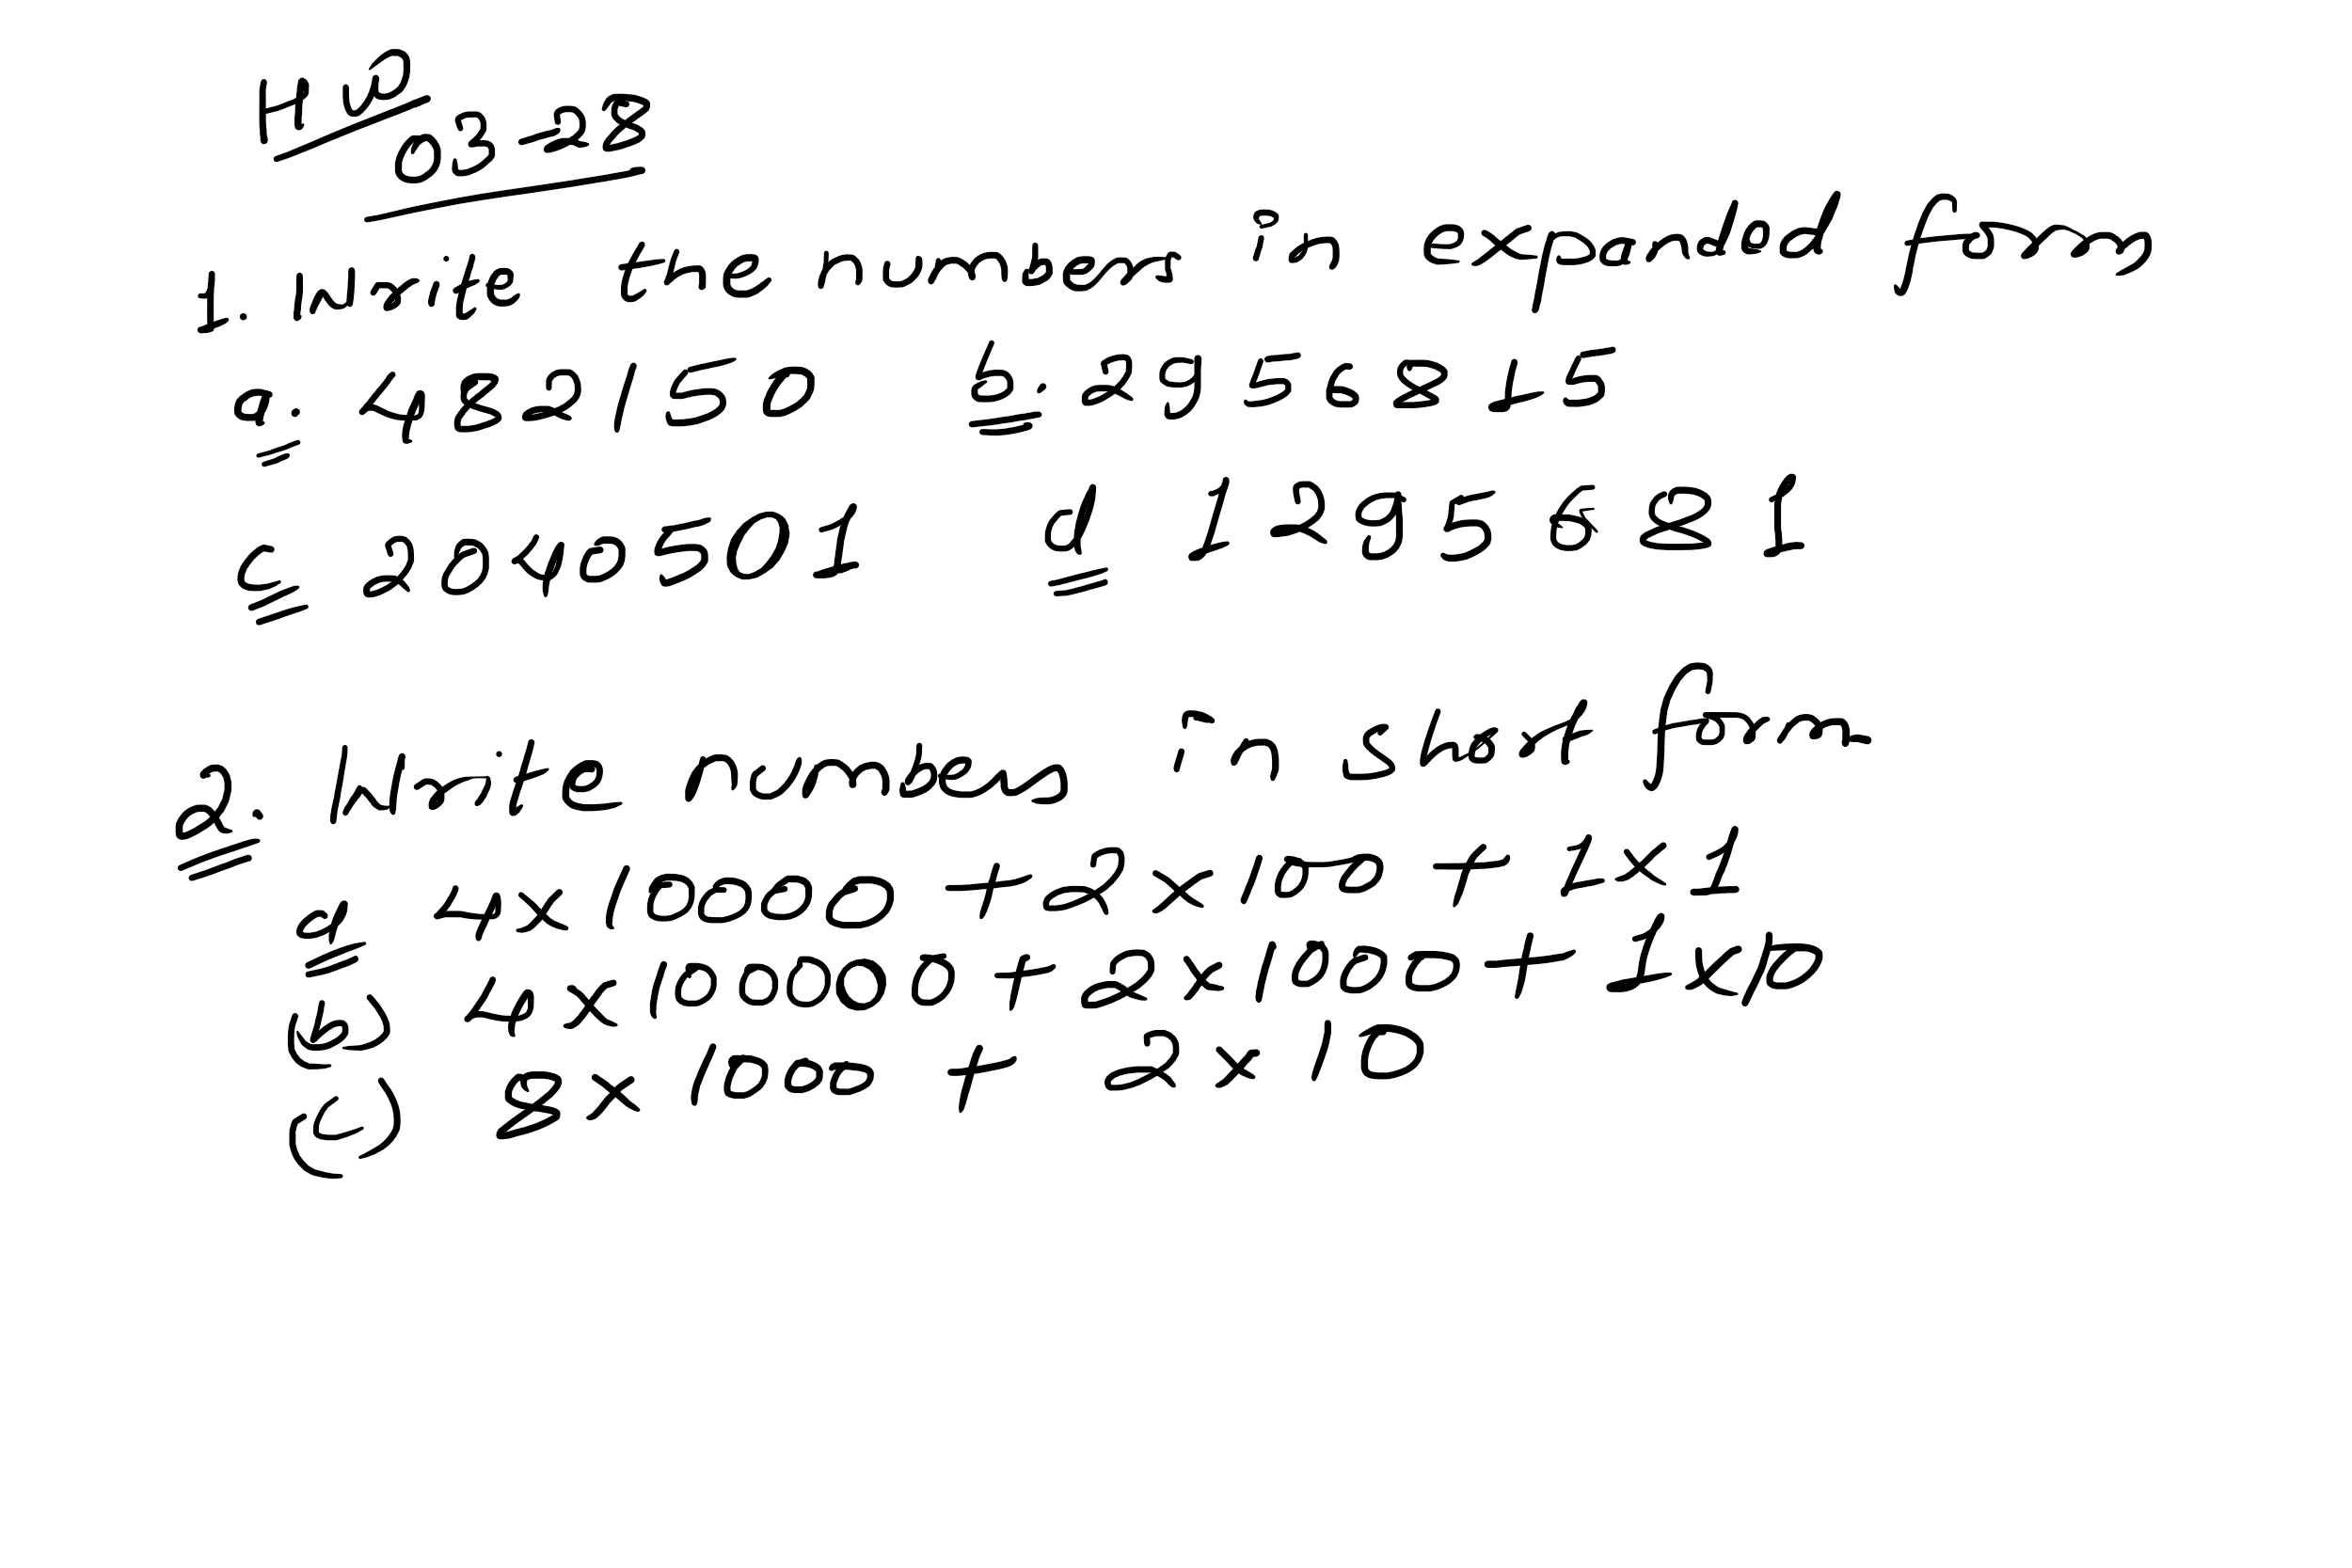 HW
03-28
1. Write the numbers in expanded form
a. 482150 b. 2956815
c 2040501 d 1295681
2. Write numbers in short form
a 4×10000 + 2×100 + 1×1
(b) 4×100000 + 2×1000 + 1×10
(c) 8×1000 + 2×10